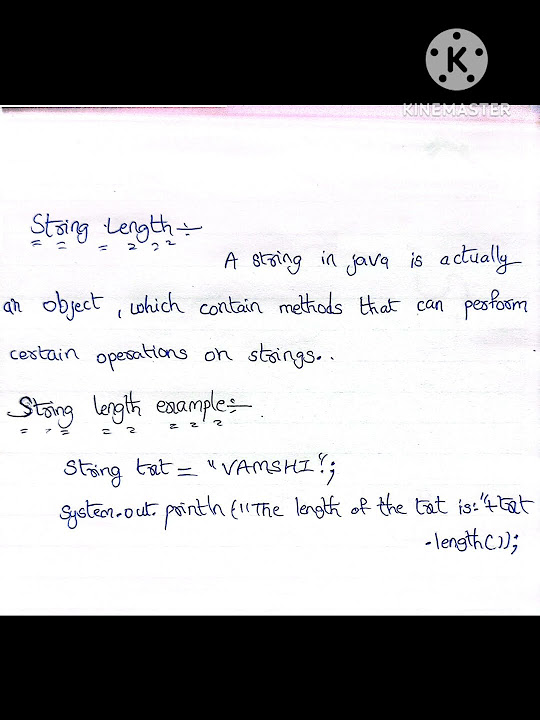 K
KINEMASTER
String Length:-
A string in java is actually
an object, which contain methods that can perform
certain operations on strings..
String length example:-
String txt = "VAMSHI";
System.out.println("The length of the txt is:"+txt
.length());